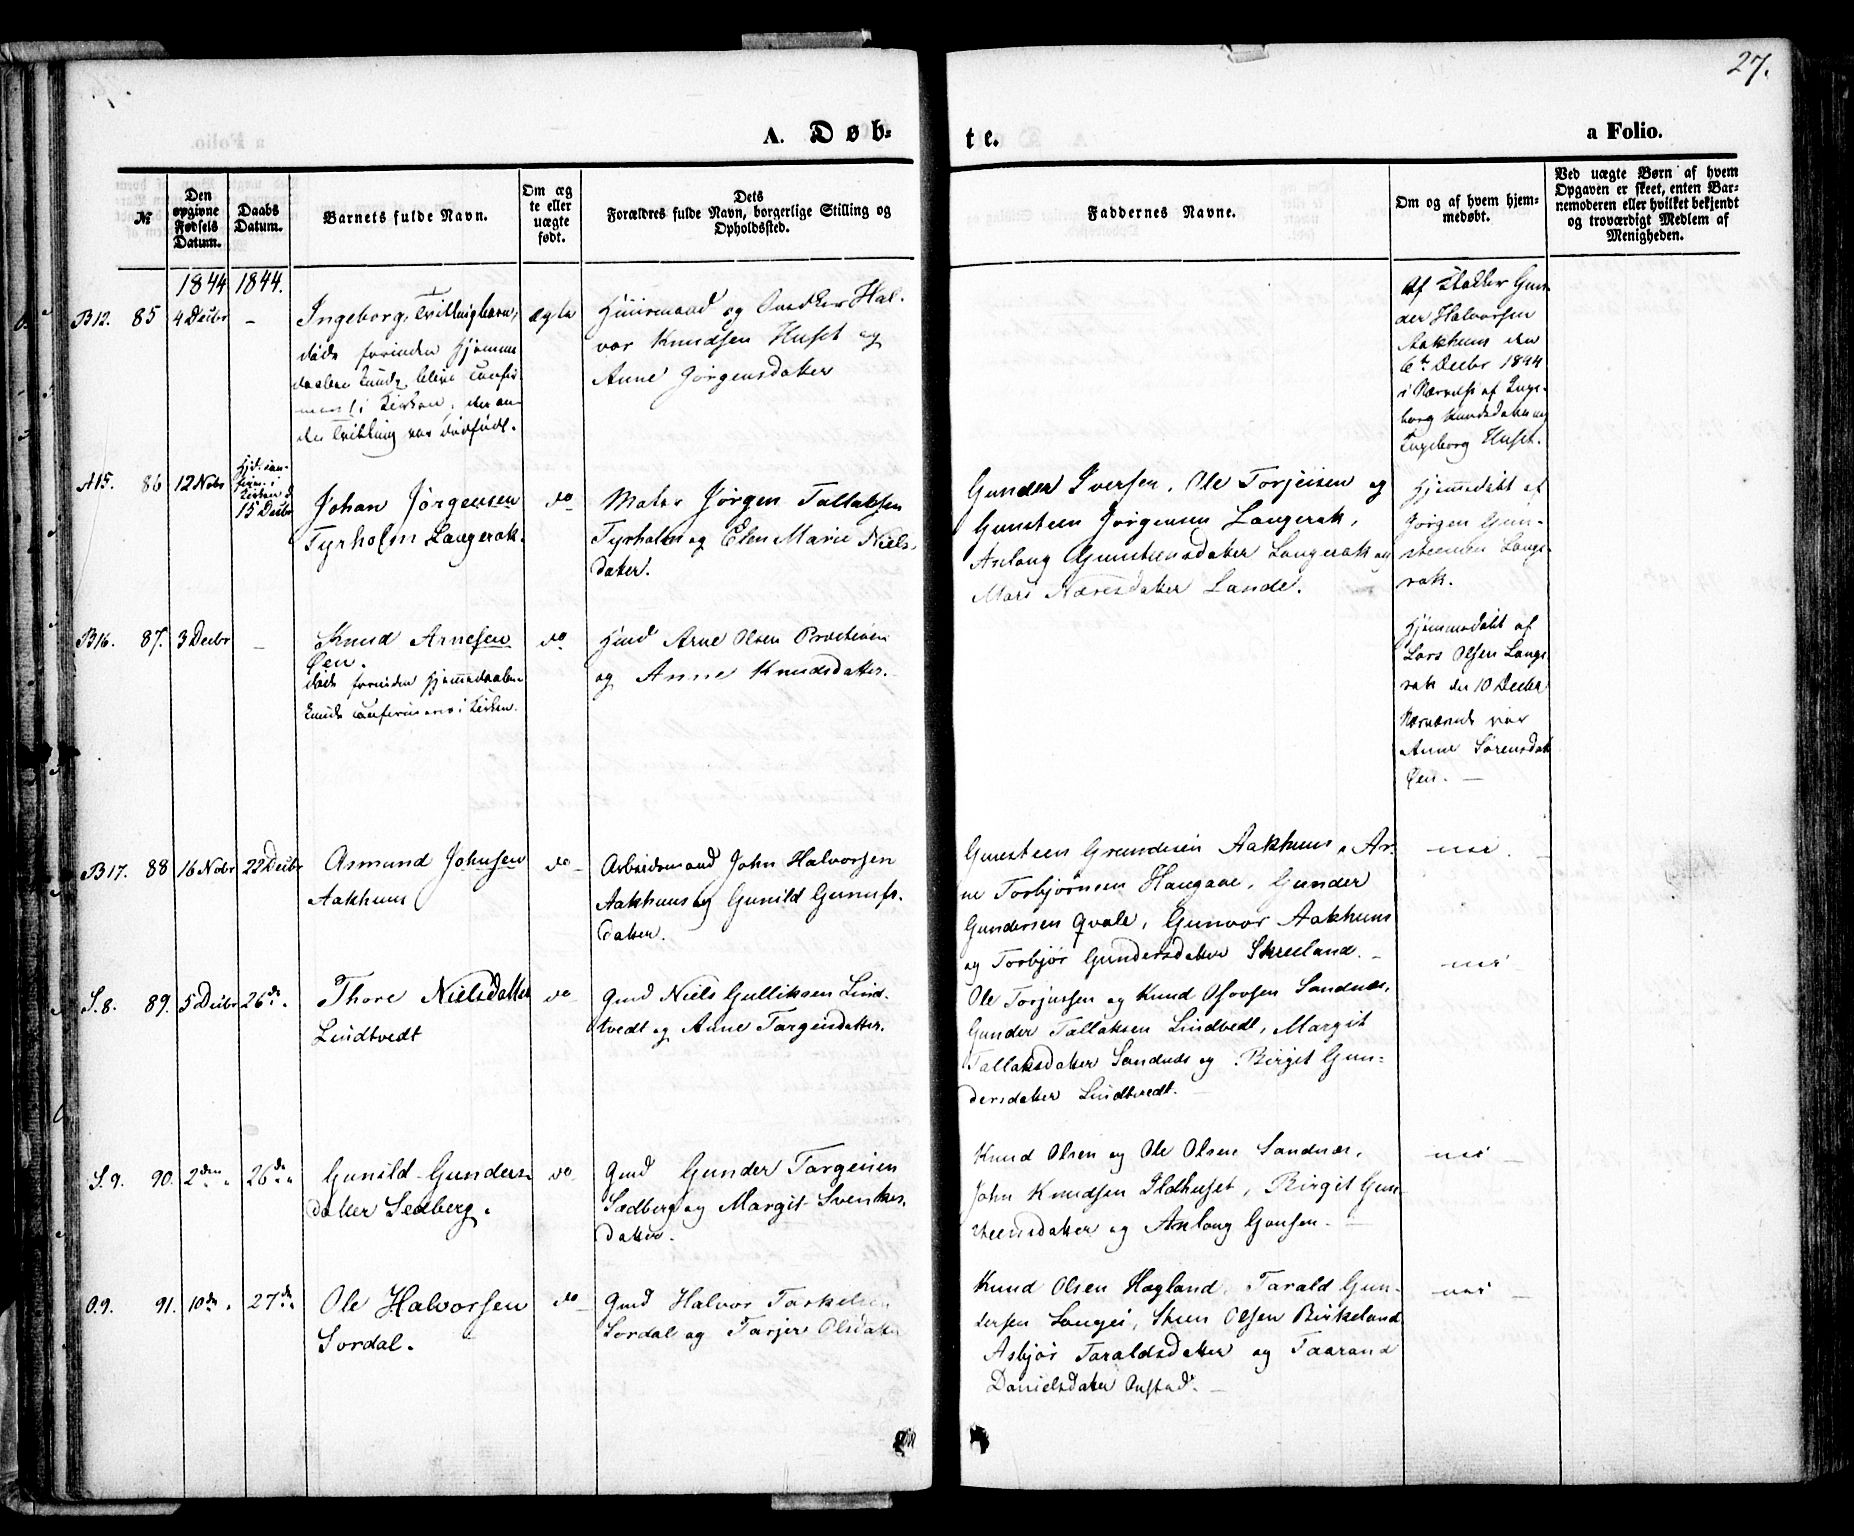 27.
A. Døb-
te.
a Folio.
№
Den opgivne Fødsels Datum.
Daabs Datum.
Barnets fulde Navn.
Om ægte eller uægte født.
Dets Forældres fulde Navn, borgerlige Stilling og Opholdssted.
Faddernes Navne.
Om og af hvem hjemmedøbt.
Ved uægte Børn af hvem Opgaven er skeet, enten Barnemoderen eller hvilket bekjendt og troværdigt Medlem af Menigheden.
1844 1844.
B12. 85 4 Decbr –
Ingeborg, Tvillingbarn,
døde forinden Hjemme
daaben kunde blive confir
i Kirken, den an-
den Tvilling var dødfødt.
ægte
Huusmand og Hal-
vor Knudsen Huset og
Anne Jørgensdatter
Af Gun-
der Halvorsen
Aakhuus den
6te Decbr 1844
i Nærvær af Inge-
borg Knudsdatter og
Ingeborg Huset.
A15. 86 12 Nobr
Hjd. con-
firm. i
Kirken d.
15 Decbr
Johan Jørgensen
Tyrholm Langerak.
do
Maler Jørgen Tallaksen
Tyrholm og Elen Marie Niels-
datter.
Gunder Iversen, Ole Torjeisen og
Gunsteen Jørgensen Langerak,
Aslaug Gunsteensdatter Langerak og
Mari Næresdatter Lande.
Hjemmedøbt af
Jørgen Gun-
steensen Lange-
rak.
B16. 87. 3 Decbr –
Knud Arnesen
Øen.
døde forinden Hjemmedaaben
kunde confirmeres i Kirken.
do
Huusmd Arne Olsen
og Anne Knudsdatter.
Hjemmedøbt af
Lars Olsen Lange-
rak den 10 Decbr
Nærværende var
Anne Sørensdatt
Øen. –
B17. 88 16 Nobr 22 Decbr
Asmund Johnsen
Aakhuus
do
Arbeidsmand John Halvorsen
Aakhuus og Gunild Gunufs-
datter.
Gunsteen Gundersen Aakhuus, Ar-
ne Torbjørnsen Haugane, Gunder
Gundersen Qvale, Gunvor Aakhuus
og Torbjør Gundersdatter Skreeland. –
nei. –
S.8. 89. 5 Decbr 26 de.
Thore Nielsdatter
Lindtvedt
do
Gmd Niels Gulliksen Lind-
tvedt og Anne Targeisdatter.
Ole Torjussen og Knud Olsen Sandnæs,
Gunder Tallaksen Lindtvedt, Margit
Tallaksdatter Sandnæs og Birgit Gun-
dersdatter Lindtvedt.
nei
S.9. 90. 2 den. 26 de.
Gunild Gunders-
datter Seaberg.
do
Gmd Gunder Targeisen
Sædberg og Margit Svenkes-
datter.
Knud Olsen og Ole Olsen Sandnæs,
John Knudsen Ildhuset, Birgit Gun-
steensdatter og Aslaug Gousen. –
nei –
O.9. 91. 10 de. 27 de.
Ole Halvorsen
Sordal.
do
Gmd Halvor Torkelsen
Sordal og Tarjer Olsdatter
Knud Olsen Hægland, Tarald Gun-
dersen Langei, Steen Olsen Birkeland
Asbjør Taraldsdatter og Taarand
Danielsdatter Oustad. –
nei –